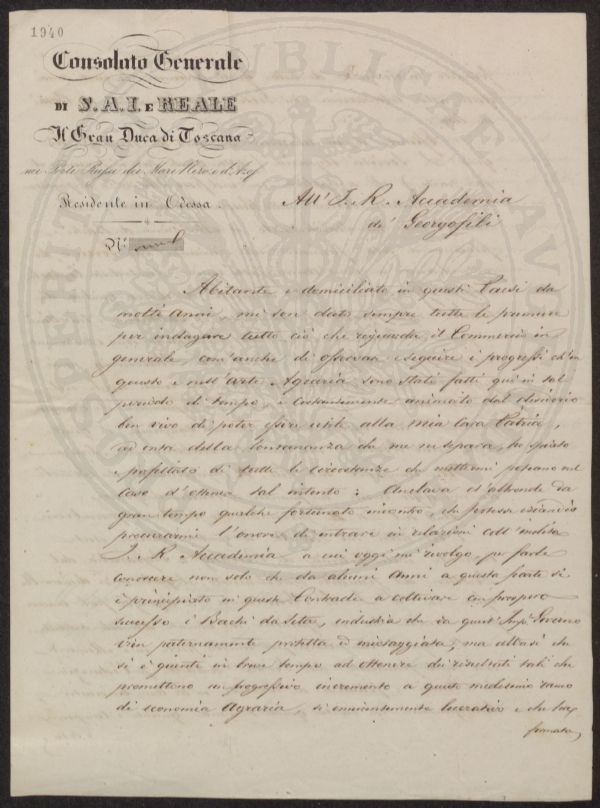 1940
Consolato Generale
DI S. A. I. E REALE
Il Gran Duca di Toscana
nei Porti Russi dei Mari Nero e d'Azof
Residente in Odessa.
All' I. R. Accademia
de' Georgofili
N.º
Abitante e domiciliato in questi Paesi da
molti anni, mi son dato sempre tutte le premure
per indagare tutto ciò che riguarda il Commercio in
generale, com'anche di osservare e seguire i progressi ch'in
questo e nell'Arte Agraria sono stati fatti qui in tal
periodo di tempo e costantemente animato dal desiderio
ben vivo di poter esser utile alla mia Cara Patria,
ad onta della lontananza che me ne separa, ho
e profittato di tutte le circostanze che mettermi potevano nel
caso d'ottener tal intento: Anelava d'altronde da
gran tempo qualche fortunato incontro, che potesse
procurarmi l'onore di entrare in relazioni coll'inclita
I. R. Accademia a cui oggi mi rivolgo, per farle
conoscere non solo che da alcuni anni a questa parte si
è principiato in queste Contrade a coltivare con prospero
successo i Bachi da Seta, industria che da quest' Imp. Governo
vien paternamente protetta ed incoraggiata, ma altresì che
si è giunti in breve tempo ad ottenere dei risultati tali che
promettono un progressivo incremento a questo medesimo ramo
di economia Agraria, sì eminentemente lucrativo e che